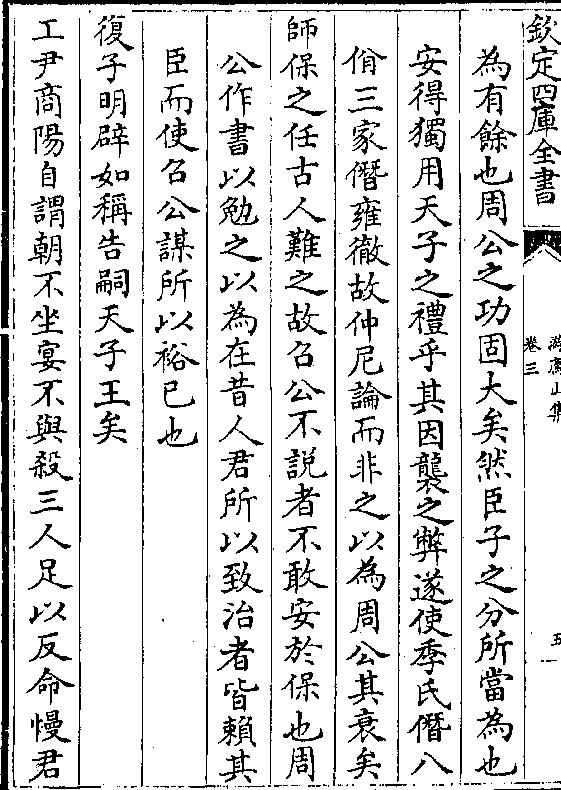 欽定四庫全書
游廌山集
卷三
五
為有餘也周公之功固大矣然臣子之分所當為也
安得獨用天子之禮乎其因襲之弊遂使季氏僭八
佾三家僭雍徹故仲尼論而非之以為周公其衰矣
師保之任古人難之故召公不說者不敢安於保也周
公作書以勉之以為在昔人君所以致治者皆賴其
臣而使召公謀所以裕已也
復子明辟如稱告嗣天子王矣
工尹商陽自謂朝不坐宴不與殺三人足以反命慢君